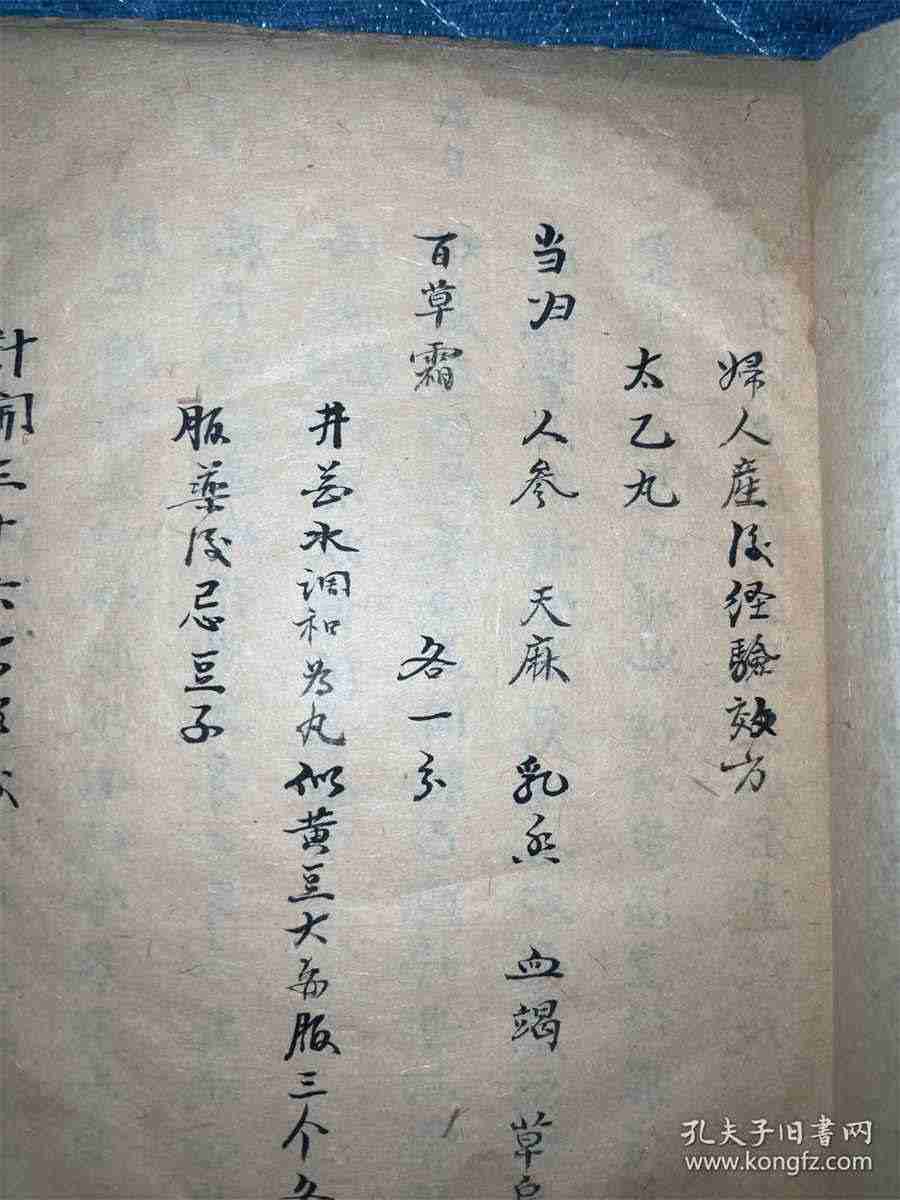 婦人産後経驗效方
太乙丸
当归 人參 天麻 乳香 血竭 草
百草霜 各一分
井花水调和为丸似黄豆大每服三个
服藥後忌豆子
計開三十六
孔夫子旧書网
www.kongfz.com